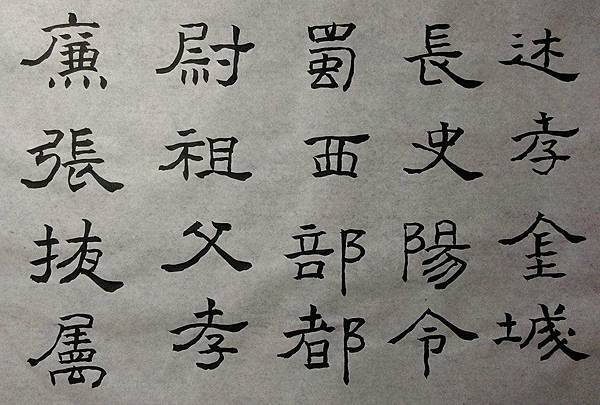 述孝金城
長史陽令
蜀西部都
尉祖父孝
廉張拔屬